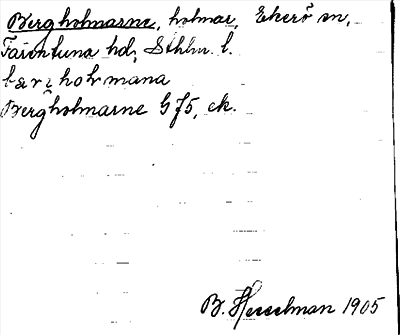 Bergholmarne, holmar, Ekerö sn,
Färentuna hd, Sthlm l.
bærjholmana
Bergholmarne GJ5, ek.
B. Hesselman 1905